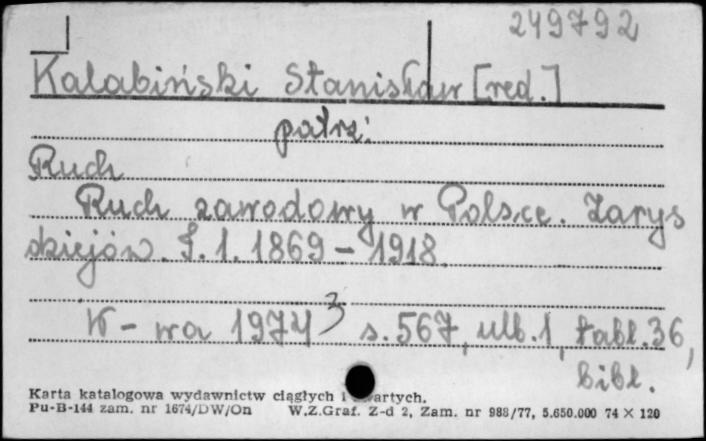 249792
Kalabiński Stanisław [red.]
patrz:
Ruch
Ruch zawodowy w Polsce. Zarys
dziejów. T. 1. 1869 - 1918.
W-wa 1974 3 s. 567, ulb. 1, tabl. 36,
bibl.
Karta katalogowa wydawnictw ciągłych i zwartych.
Pu-B-144 zam. nr 1674/DW/On W.Z.Graf. Z-d 2, Zam. nr 988/77, 5.650.000 74 X 120